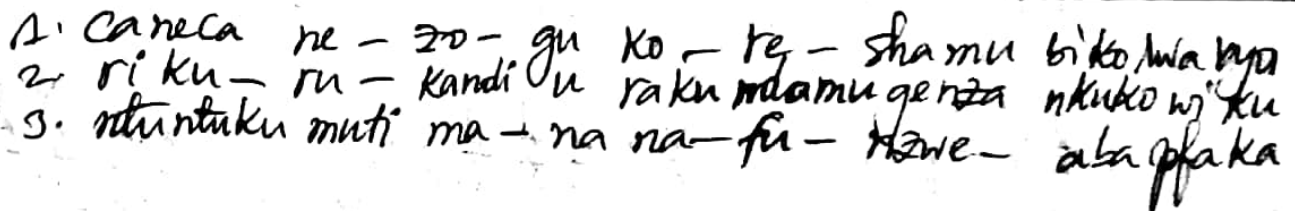 1. Caneca ne - zo - gu ko - re - shamu biko lwa byo
2. ri ku - ru - kandi u raku mdamu genza nkuko wi ku
3. ntuntuku muti ma - na na - fu - nzwe - aba pfaka